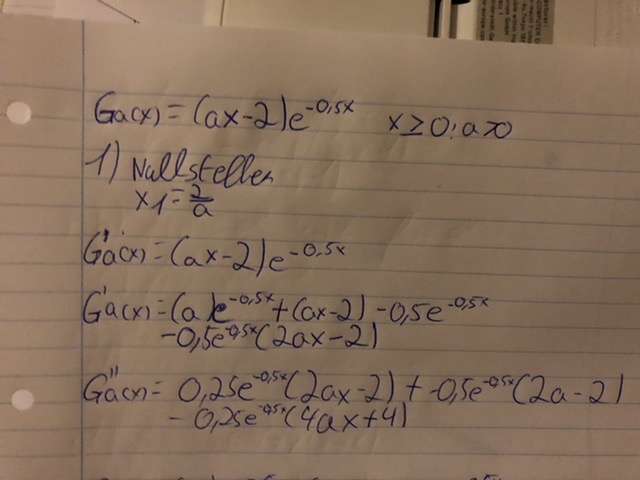 Ga(x) = (ax-2)e^-0,5x x ≥ 0; a>0
1) Nullstellen
x1 = 2/a
G'a(x) = (ax-2)e^-0,5x
G'a(x) = (a)e^-0,5x + (ax-2) -0,5e^-0,5x
-0,5e^-0,5x(2ax-2)
G''a(x) = 0,25e^-0,5x(2ax-2) + -0,5e^-0,5x(2a-2)
- 0,25e^-0,5x(4ax+4)